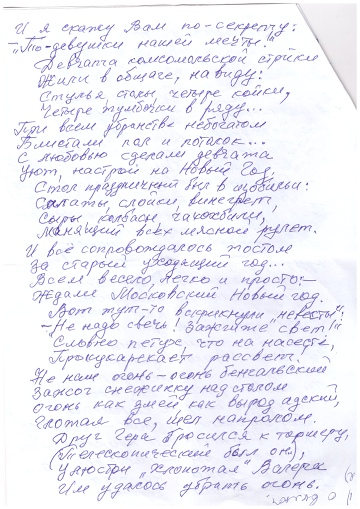 И я скажу Вам по-секрету:
"То-девушки нашей мечты!"
Девчата комсомольской стройки
Жили в общаге, на виду:
Стулья, столы, четыре койки,
Четыре тумбочки в ряду...
При всём убранстве небогатом
Блистали пол и потолок...
С любовью сделали девчата
Уют, настрой на Новый Год.
Стол праздничный был в изобилии:
Салаты, слойки, винегрет,
Сыры, колбасы,
Манящий всех мясной рулет.
И всё сопровождалось тостом
За старый уходящий год...
Всем весело, легко и просто –
Ждали Московский Новый год.
Вот тут-то вскрикнули "невесты":
– Не надо свечь! Зажгите свет!"
Словно петух, что на насесте,
Прокукарекает рассвет!
Не нам огонь – огонь бенгальский
Зажёг снежинку над столом
Огонь как змей как вырод адский,
Глотал всё, шёл напролом.
Друг Гера бросился к торшеру,
(Телескопический был он),
У люстры "Хлопотал" Валера
Им удалось убрать огонь.